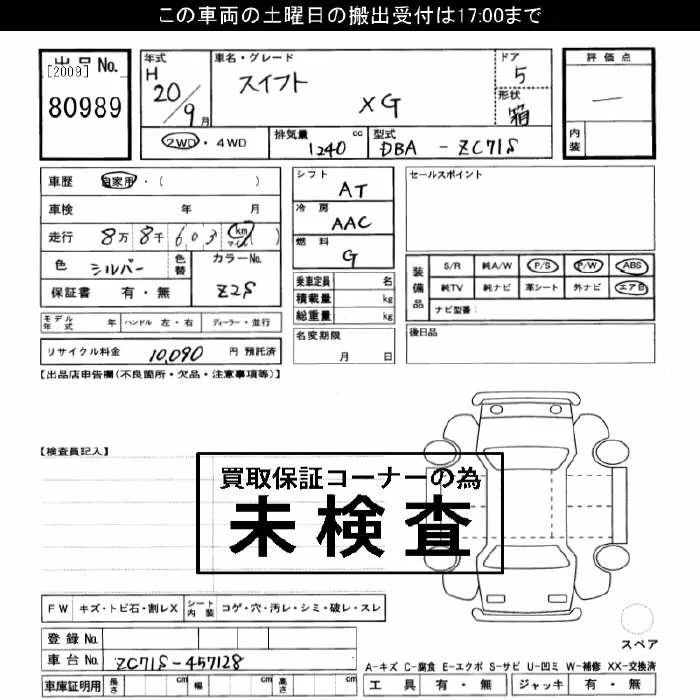 この車両の土曜日の搬出受付は17:00まで
出品No.
[2009]
80989
年式
H
20/9月
車名・グレード
スイフト
XG
ドア
5
形状
箱
評価点
―
内装
2WD・4WD
排気量 cc
1240
型式
DBA - ZC71S
車歴 自家用・( )
車検 年 月
走行 8万8千603 km マイル ( )
色 シルバー 色替
カラーNo.
Z2S
保証書 有・無
シフト
AT
冷房
AAC
燃料
G
乗車定員 名
積載量 kg
総重量 kg
名変期限
月 日
セールスポイント
装備品
S/R 純A/W P/S P/W ABS
純TV 純ナビ 革シート 外ナビ エアB
ナビ型番:
後日品
モデル年式 年 ハンドル 左・右 ディーラー・並行
リサイクル料金 10,090 円 預託済
【出品店申告欄(不良箇所・欠品・注意事項等)】
【検査員記入】
買取保証コーナーの為
未検査
FW キズ・トビ石・割レX シート内装 コゲ・穴・汚レ・シミ・破レ・スレ
登録No.
車台No. ZC71S-457128
車庫証明用 長さ cm 幅 cm 高さ cm
スペア
A-キズ C-腐食 E-エクボ S-サビ U-凹ミ W-補修 XX-交換済
工具 有・無 ジャッキ 有・無